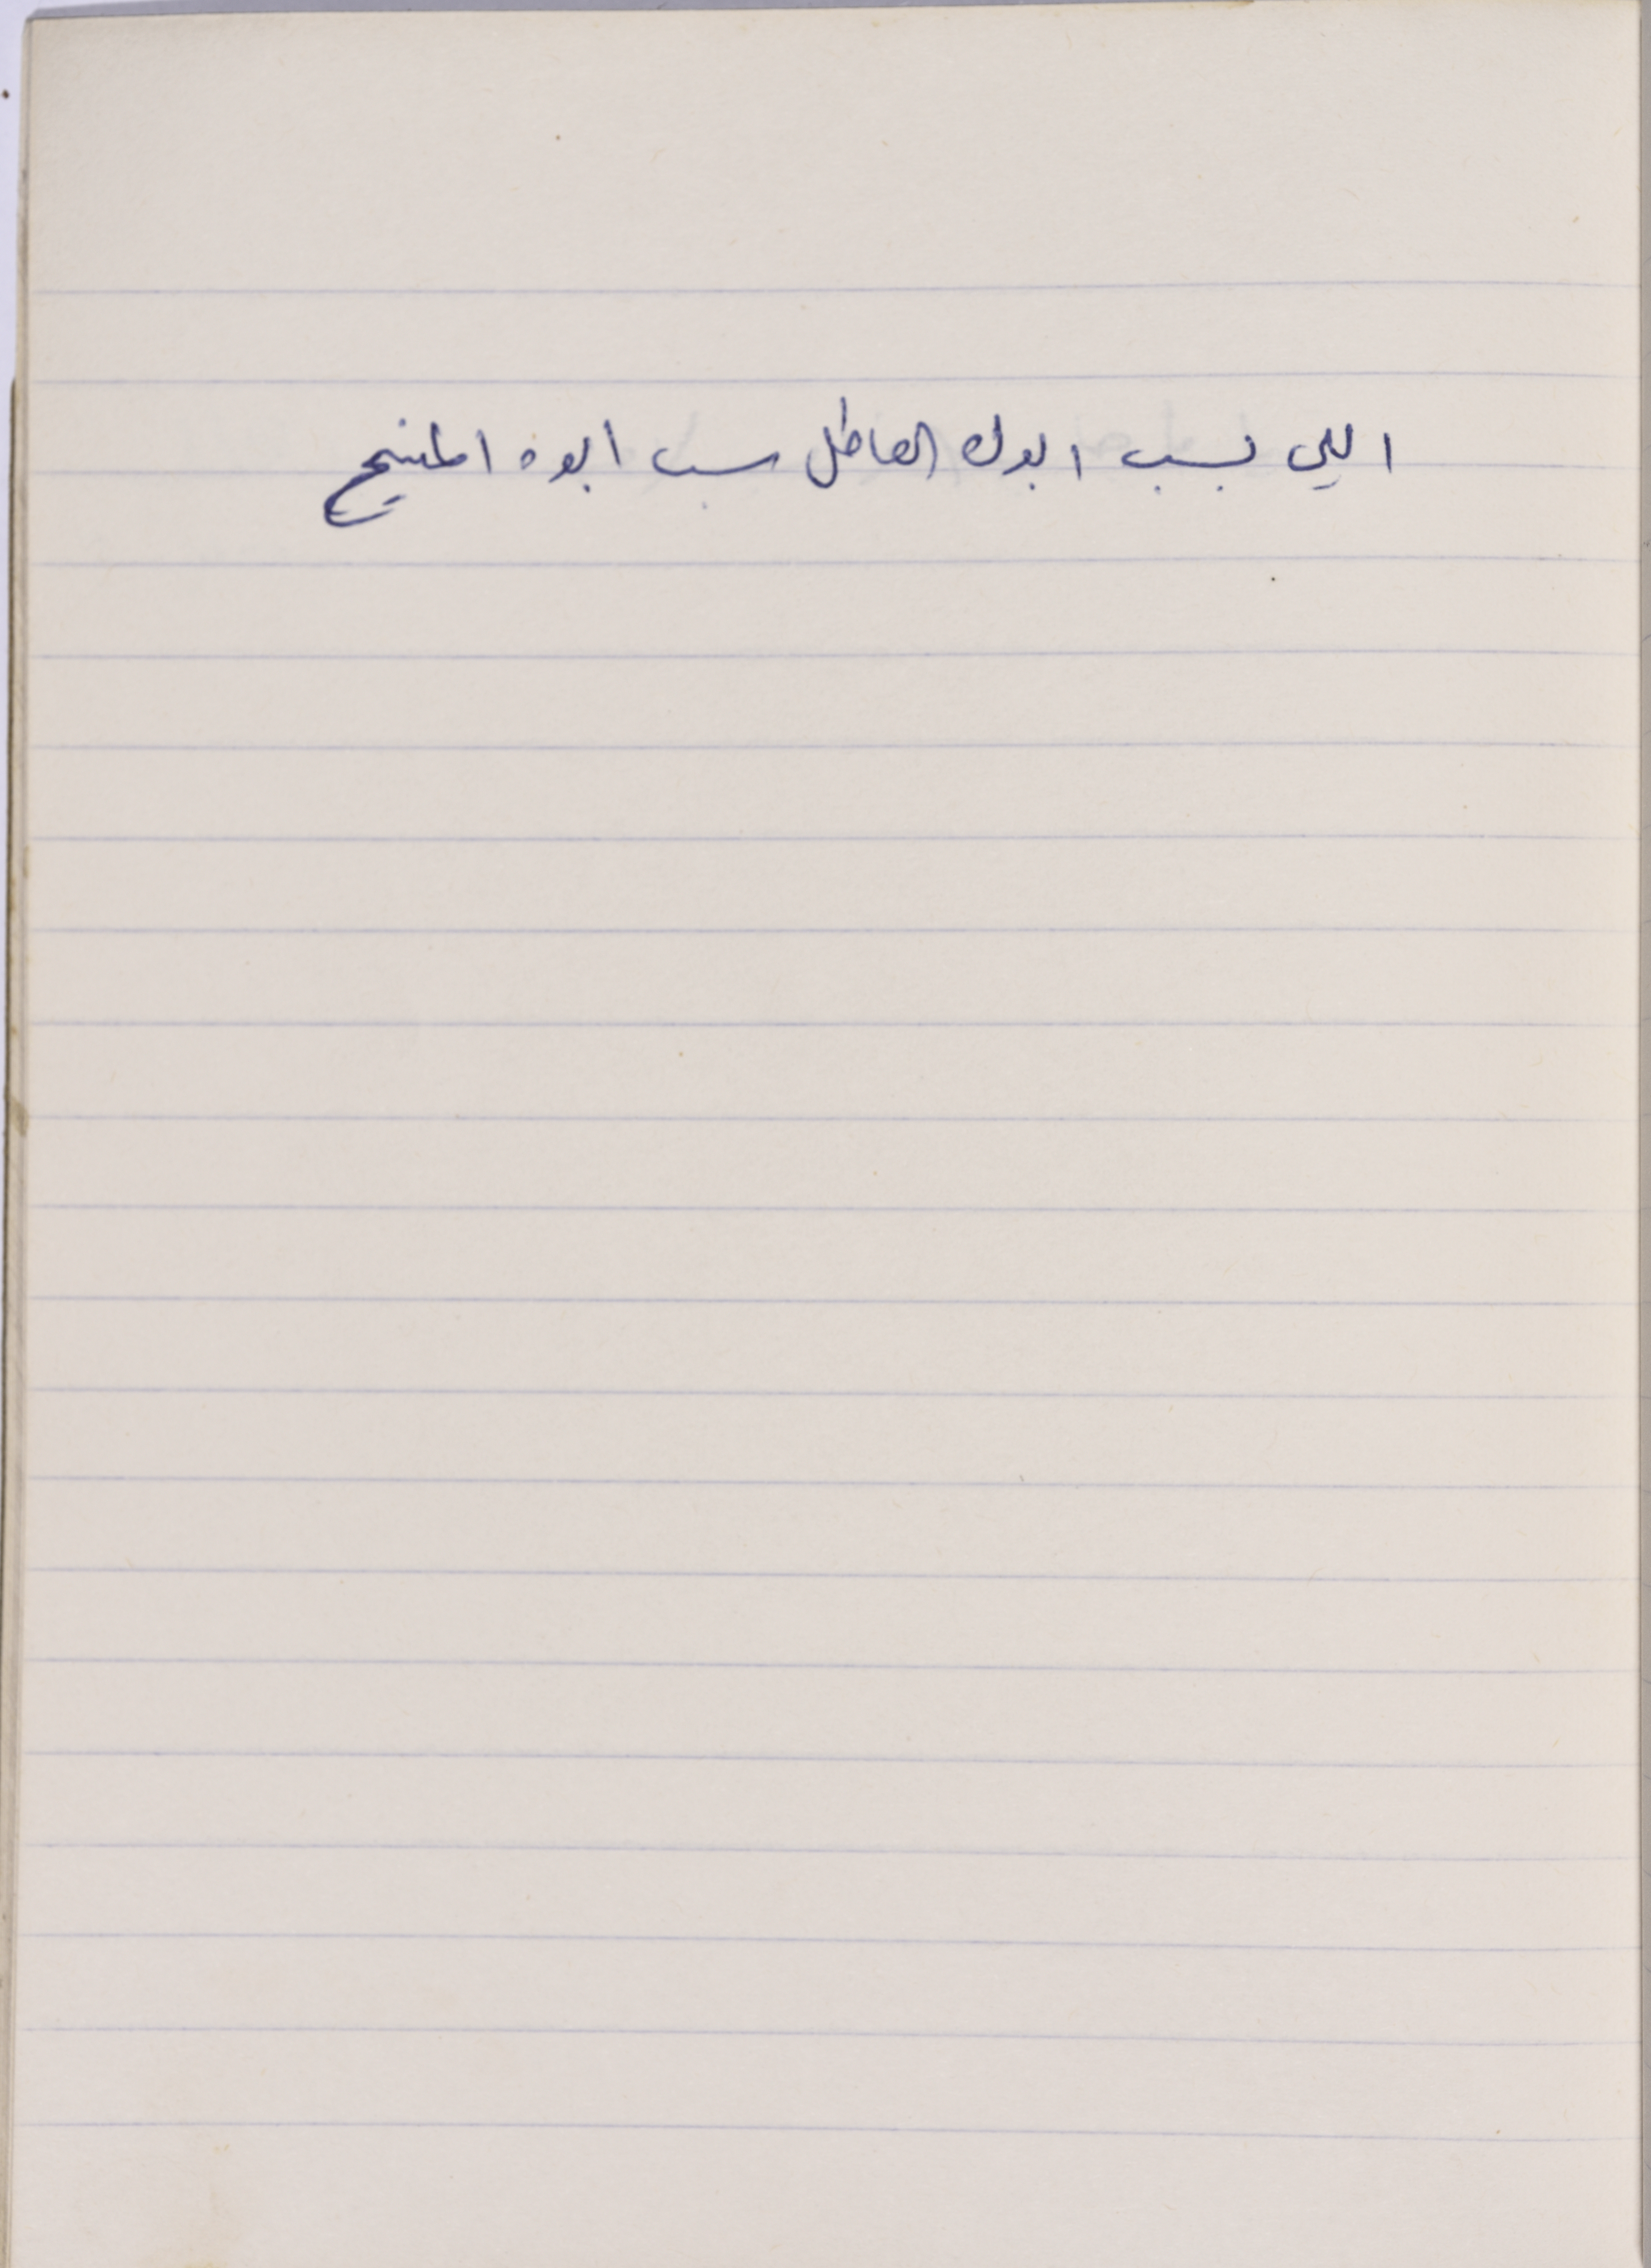 اللي بسب ابوك العاطل سب ابوه المنيح